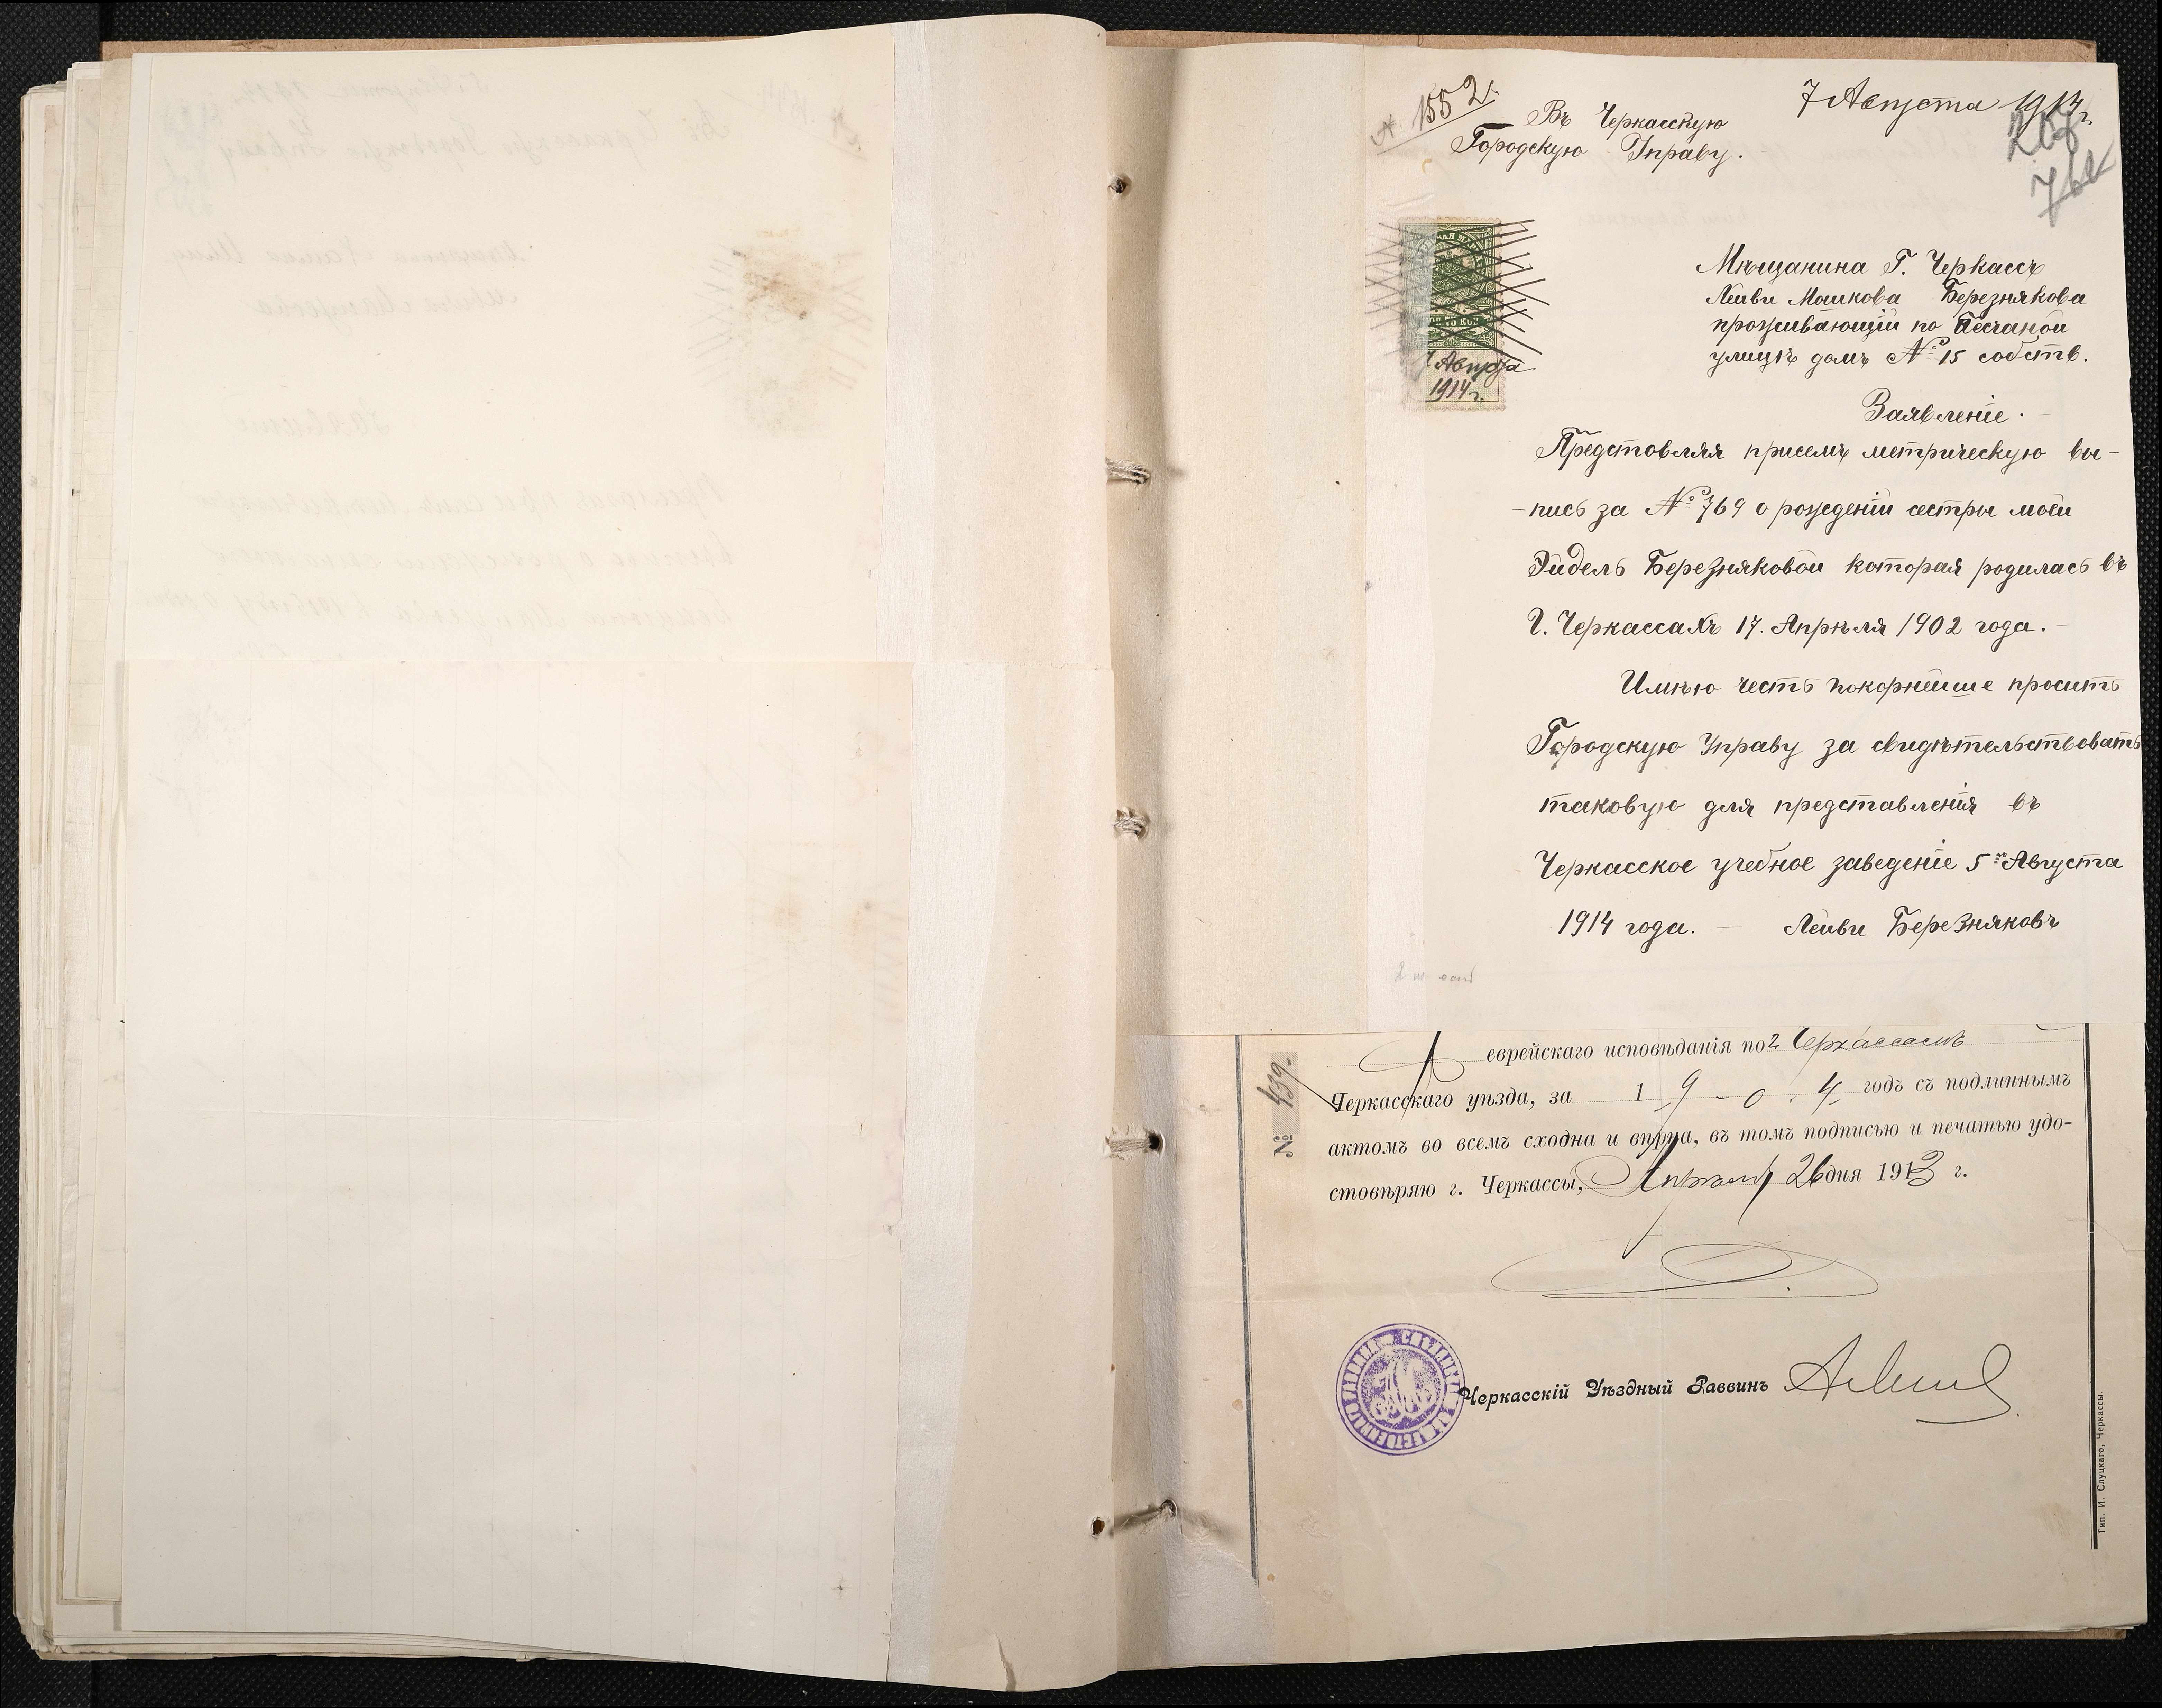 № 1552.
7 Августа 1914 г.
Въ Черкасскую
Городскую Управу.
Мѣщанина Г. Черкассъ
Лейви Мошкова Березнякова
проживающій по Песчаной
улицѣ домъ № 15 собств.
75 КОП
7 Августа
1914 г.
Заявленіе.
Предстовляя присемъ метрическую вы-
-пись за № 769 о рожденіи сестры моей
Эйдель Березняковой которая родилась въ
Г. Черкассахъ 17. Апрѣля 1902 года.
Имѣю честь покорнейше просить
Городскую Управу за свидѣтельствовать
таковую для представленія въ
Черкасское учебное заведеніе 5го Августа
1914 года. — Лейви Березняковъ
еврейскаго исповѣданія по г. Черкассамъ
№ 439.
Черкасскаго уѣзда, за 1904 годъ съ подлиннымъ
актомъ во всемъ сходна и вѣрна, въ томъ подписью и печатью удо-
стовѣряю г. Черкассы, Апрѣля 26 дня 1913 г.
Черкасскій Уѣздный Раввинъ
Тип. И. Слуцкаго, Черкассы